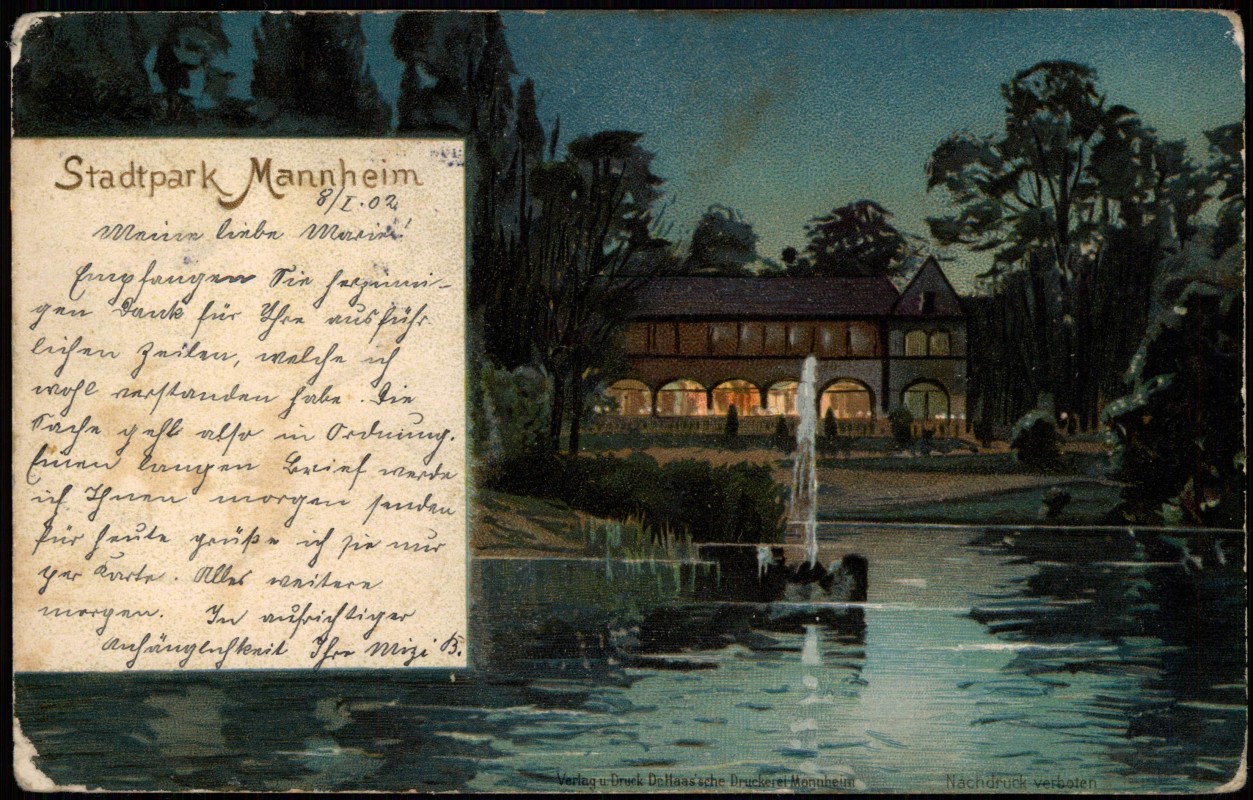 Stadtpark Mannheim
8/I.02
Meine liebe Marie!
Empfangen Sie herzinni-
gen Dank für Ihre ausführ
lichen Zeilen, welche ich
wohl verstanden habe. Die
Sache geht also in Ordnung.
Einen langen Brief werde
ich Ihnen morgen senden
für heute grüße ich sie nur
per Karte. Alles weitere
morgen. In aufrichtiger
Anhänglichkeit Ihre Mizi B.
Verlag u. Druck DeHaas'sche Druckerei Mannheim
Nachdruck verboten